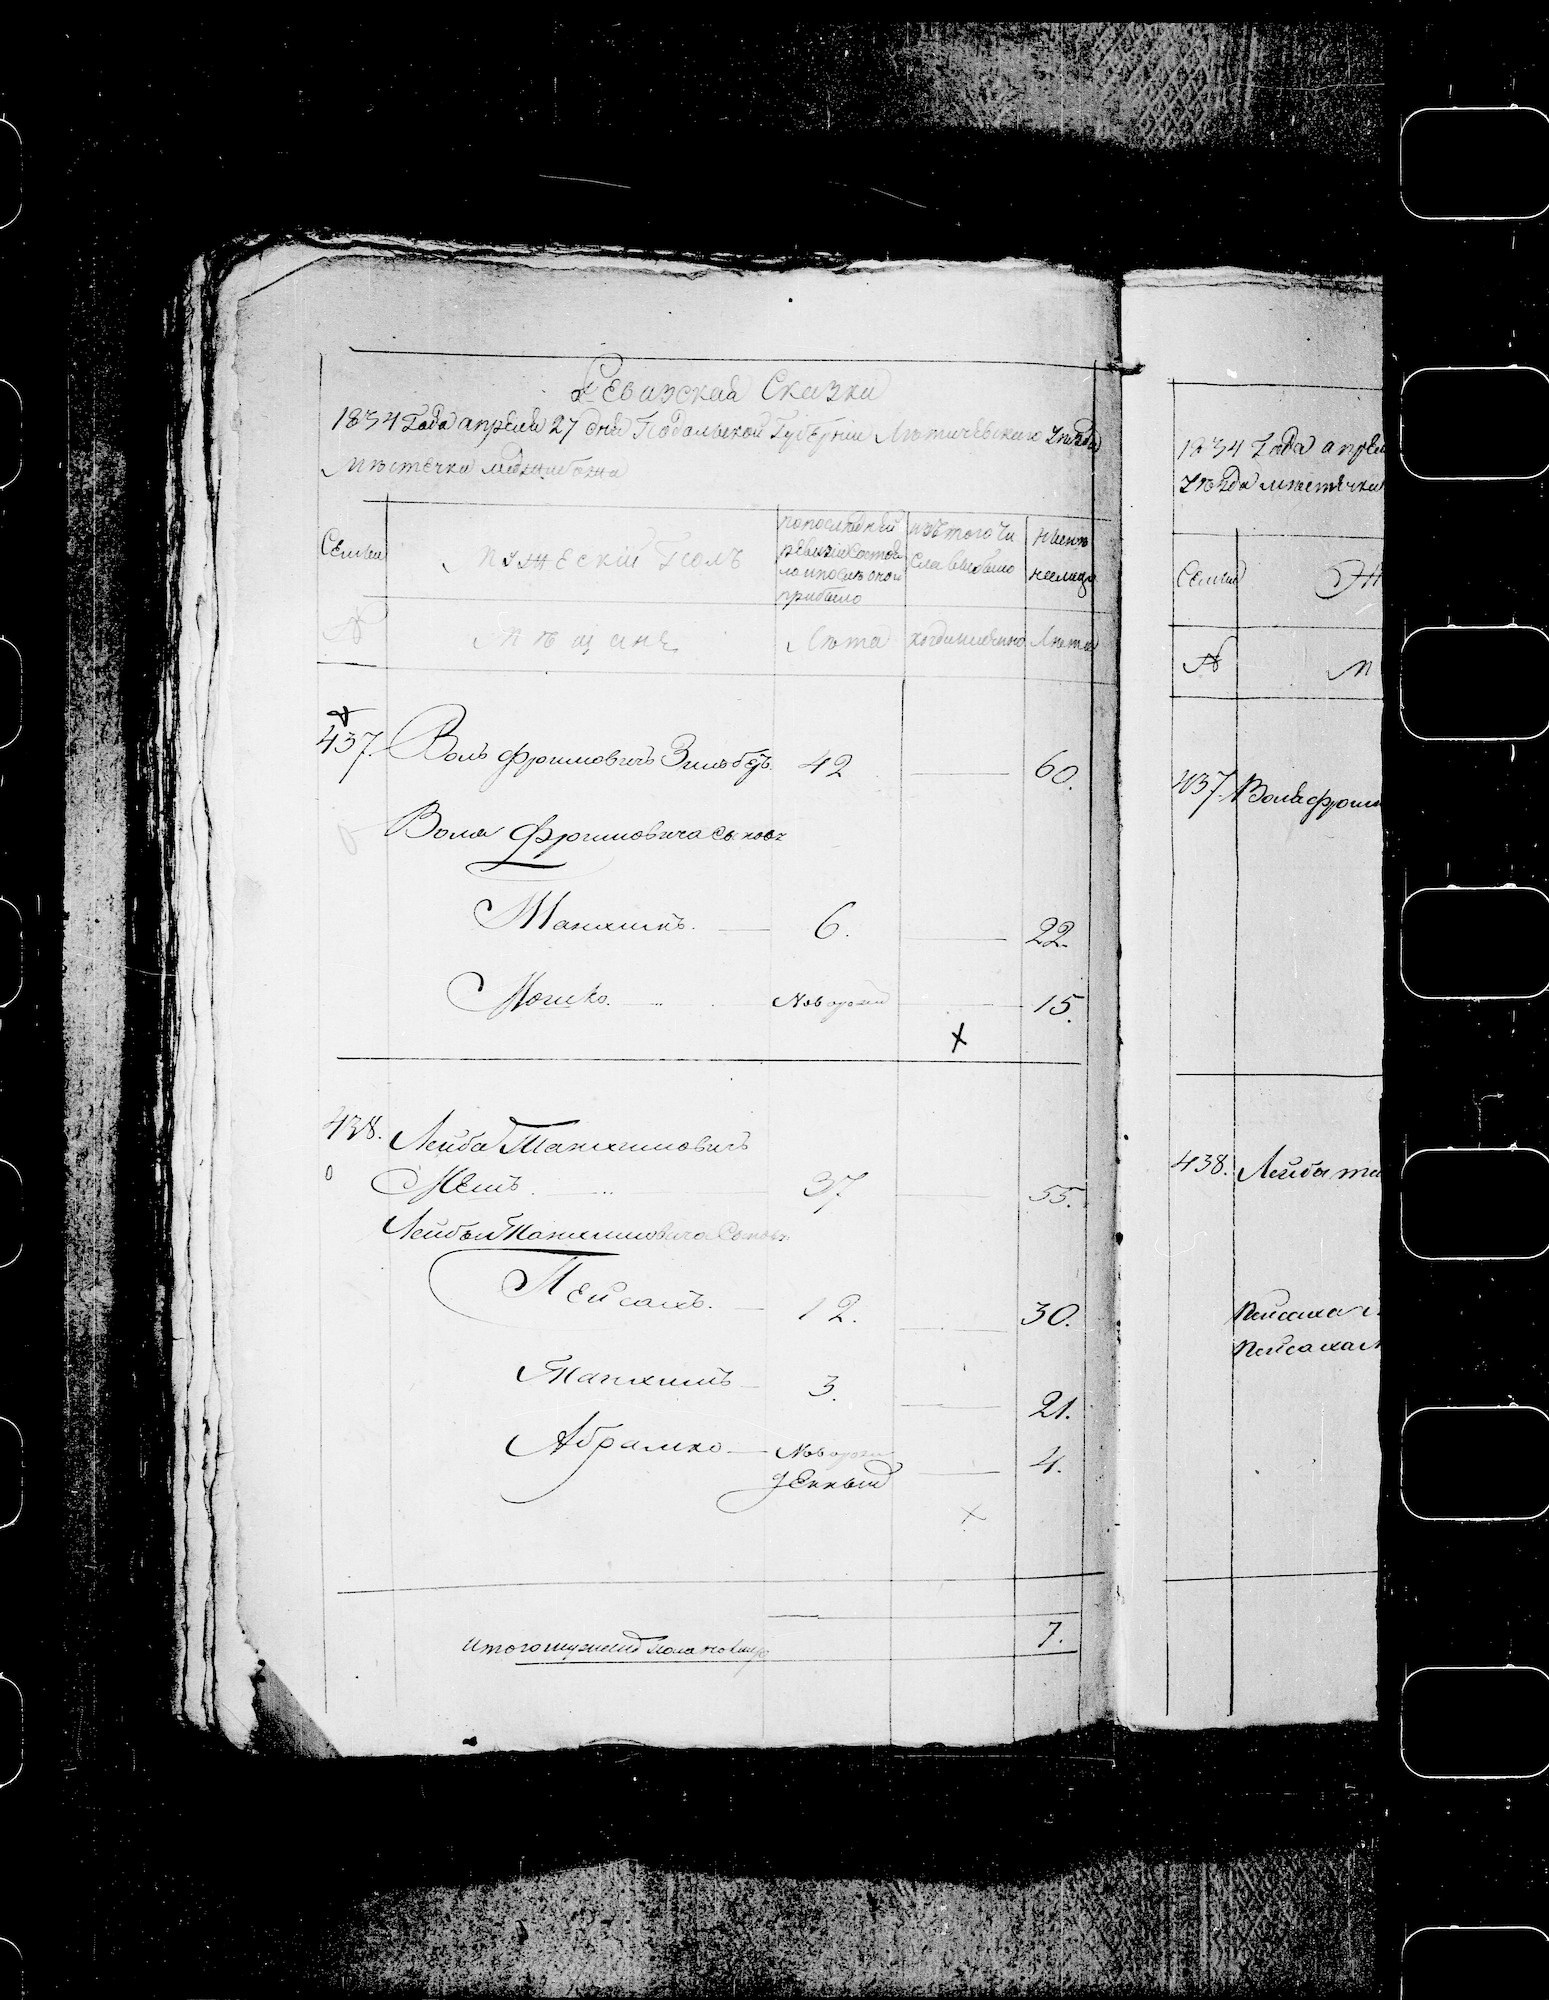 Ревизская Сказка
1834 Года апреля 27 дня Подольской Губернии Лѣтичевского уѣзда
Мѣстечка Меджибожа
Семьи
Мужескій Полъ
по последней
ревизіи состоя
ло и после оной
прибыло
изъ того чи
сла выбыло
Ныне
налицо
№
Мѣщане
Лѣта
когда именно
Лѣта
437. Воль Фроимовичъ 42 60.
Воля Фроимовича сыновя
6. 22.
Мошко. 15.
438. Лейба Танхимовичъ
37 55.
Лейбы Танхимовича Сыновя
Пейсахъ. 12. 30.
Танхимъ 3. 21.
Абрамко Новорож
денный 4.
Итого мужеска пола налицо 7.
1834 Года апрел
уѣзда мѣстечка
Семьи
№ М
437. Воля Фроим
438. Лейба та
Пейсаха
Пейсаха